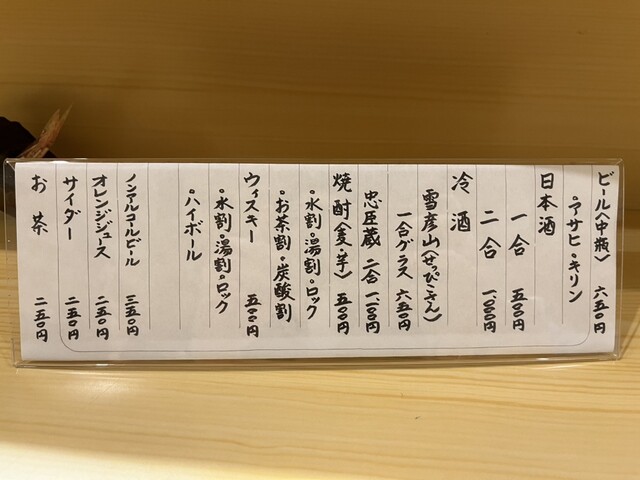 ビール〈中瓶〉 六五〇円
・アサヒ・キリン
日本酒
一合 五〇〇円
二合 一、〇〇〇円
冷酒
雪彦山〈せっぴこさん〉
一合グラス 六五〇円
忠臣蔵 二合 一、一〇〇円
焼酎〈麦・芋〉 五〇〇円
・水割・湯割・ロック
・お茶割・炭酸割
ウィスキー 五〇〇円
・水割・湯割・ロック
・ハイボール
ノンアルコールビール 三五〇円
オレンジジュース 二五〇円
サイダー 二五〇円
お茶 二五〇円